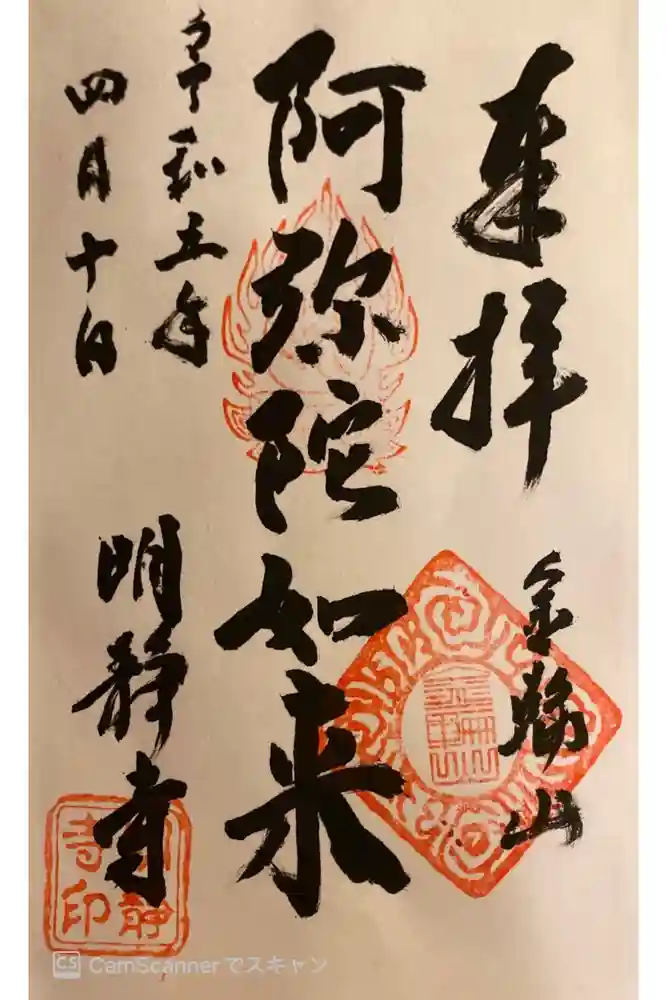 奉拝
金輪山
阿弥陀如来
令和五年
四月十日
明静寺
明静寺印
CS CamScannerでスキャン